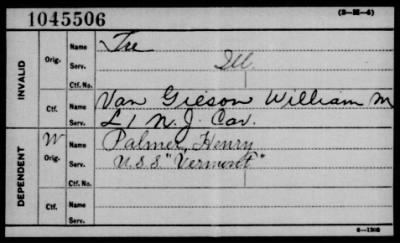 1045506
(3—M—6)
INVALID
Orig.
Name
Serv. Ill.
Ctf. No.
Ctf.
Name Van Gieson William M
Serv. L 1 N. J. Cav.
DEPENDENT
W
Orig.
Name Palmer, Henry
Serv. U.S.S "Vermont"
Ctf. No.
Ctf.
Name
Serv.
6—1380